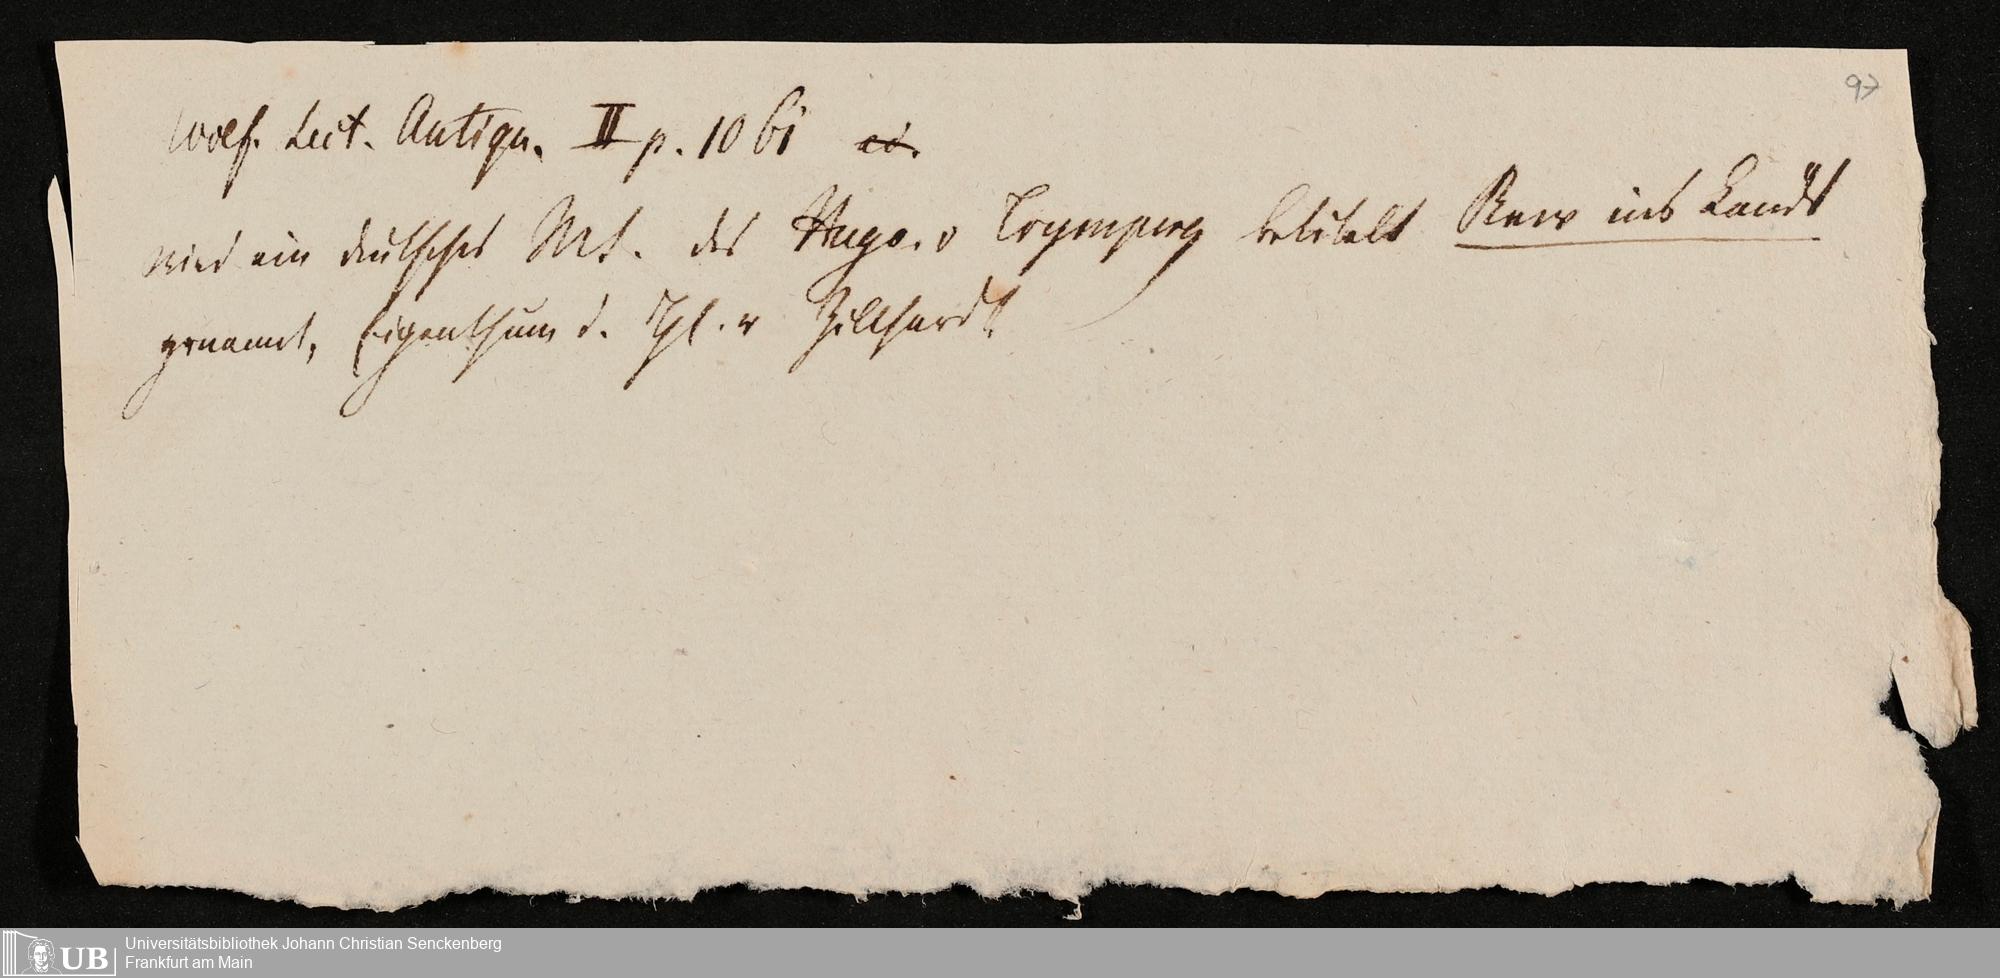 97
Wolf. Lect. Antiqu. II p. 1061
wird ein deutsches Ms. des Hugo v Trymperg betitelt Renn ins Landt
genannt, Eigenthum d. Phl. v Zillhardt
Universitätsbibliothek Johann Christian Senckenberg
Frankfurt am Main
UB